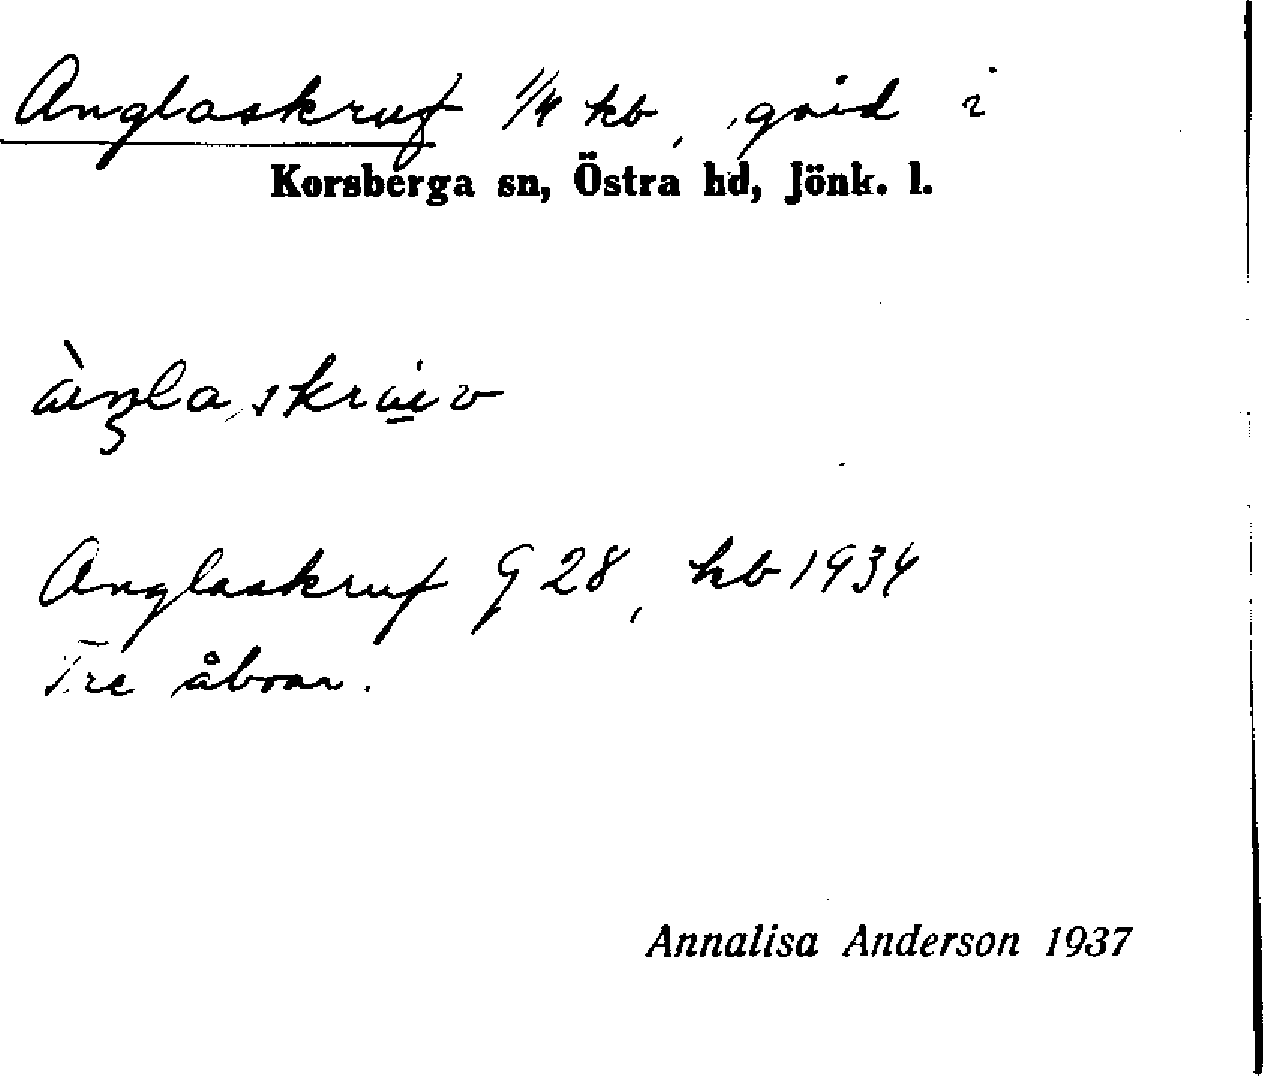 Anglaskruf 1/4 kb, gård i
Korsberga sn, Östra hd, Jönk. l.
Anglaskruf G 28, kb 1934
Tre åboar.
Annalisa Anderson 1937